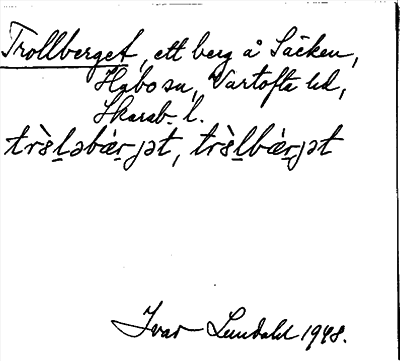 Trollberget, ett berg å Säcken,
Habo sn, Vartofta hd,
Skarab. l.
trɜ̀ḻəbæ̀ṟjət, trɜ̀ḻbæ̀ṟjət
Ivar Lundahl 1948.